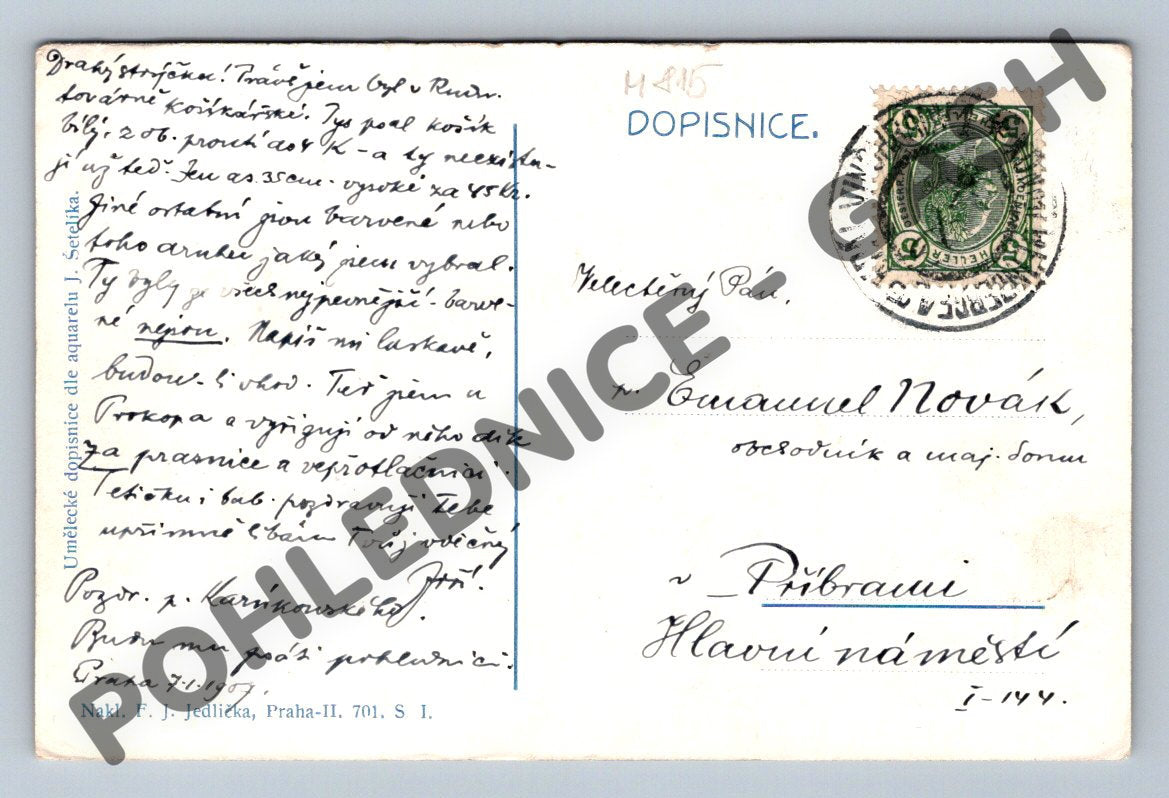 Drahý strýčku! Právě jem byl v Rudn.
továrně košíkářské. Tys psal košík
bílý, z ob. proutí do 4 K - a ty neexistu-
jí už teď. Jen as 35cm. vysoké za 45 Kr.
Jiné ostatní jsou barvené nebo
toho druhu jaký jsem vybral.
Ty byly ze všech nejpevnější - barve-
né nejsou. Napiš mi laskavě,
budou-li vhod. Teď jsem u
Prokopa a vyřizuji od něho dík
za prasnice a
Tetičku i bab. pozdravuji Tebe
upřímně líbám Tvůj vděčný
Jiří.
Pozdr. p.
Budu mu psáti pohlednici.
Praha 7.1.1907.
Umělecké dopisnice dle aquarelu J. Šetelíka.
Nakl. F. J. Jedlička, Praha-II. 701. S I.
M 815
DOPISNICE.
5 5
HELLER
5 5
Velectěný Pán,
p. Emanuel Novák,
obchodník a maj. domu
v Příbrami
Hlavní náměstí
I-144.
POHLEDNICE - GTH